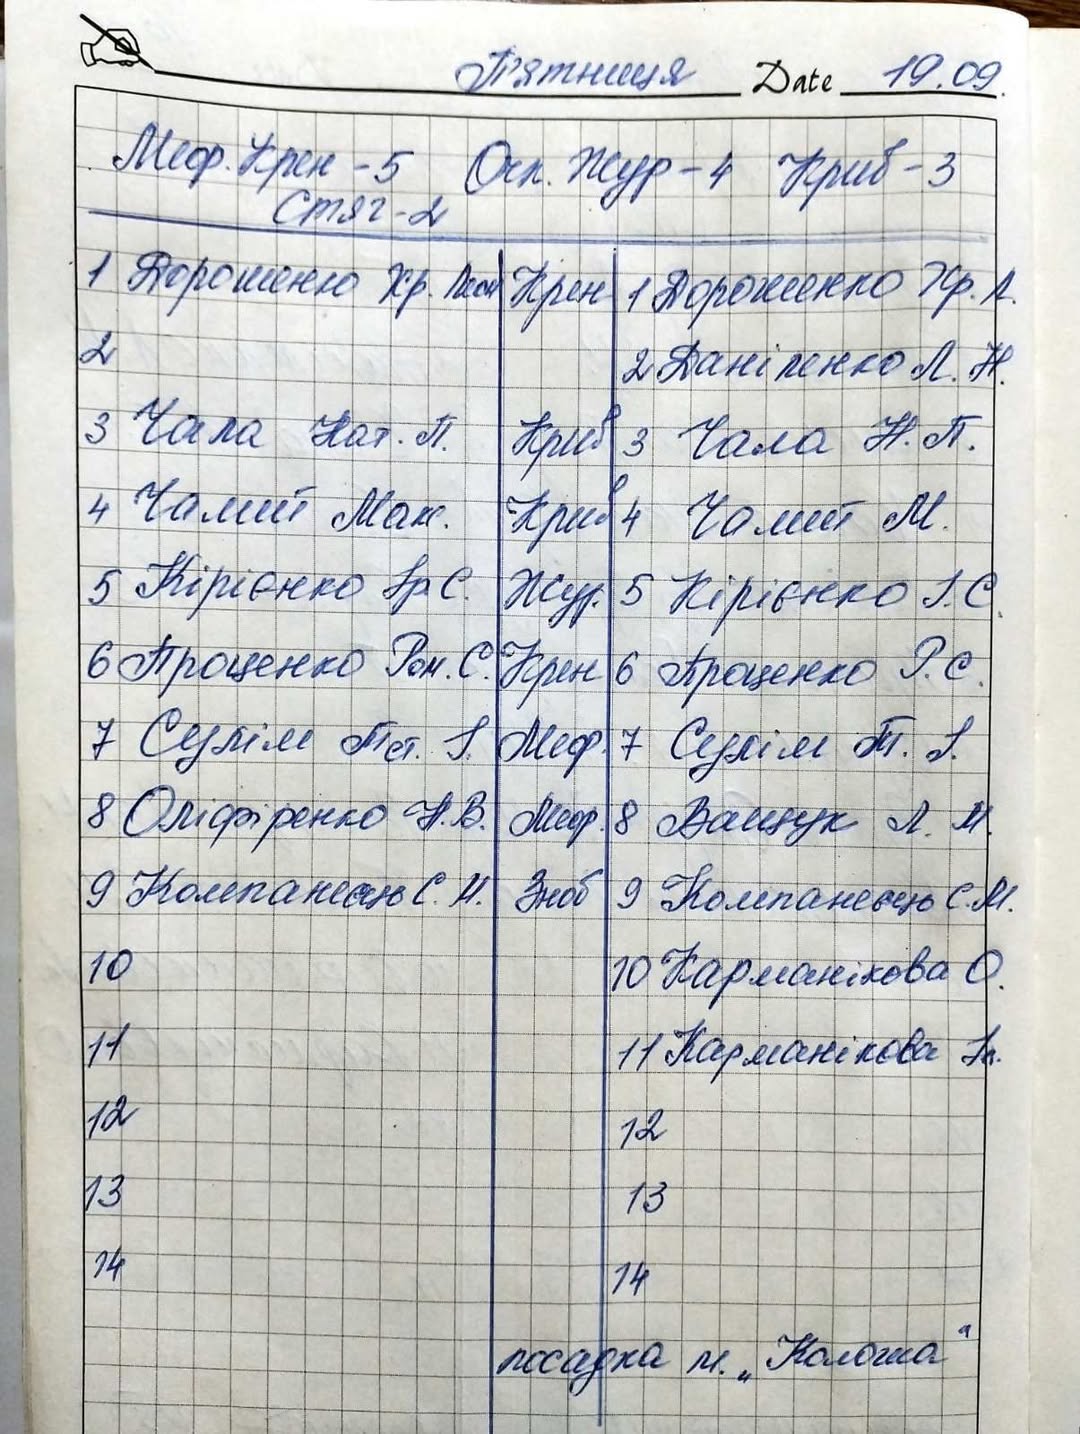 П'ятниця Date 19.09.
Меф. Крен - 5 Очк. Жур - 4 Криб - 3
Стяг - 2
1 Дорошенко Хр. Крен 1 Дорошенко Хр. Л.
2 2 Даніленко Л. Н.
3 Чала Нат. П. Криб 3 Чала Н. П.
4 Чалий Макс. Криб 4 Чалий М.
5 Кірієнко Ір. С. Жур. 5 Кірієнко І. С.
6 Проценко Ром. С. Крен 6 Проценко Р. С.
7 Сулім Тет. І. Меф. 7 Сулім Т. І.
8 Оліфіренко Н. В. Меф. 8 Ващук Л. М.
9 Компанєєць С. М. Зноб 9 Компанєєць С. М.
10 10 Карманікова О.
11 11 Карманікова
12 12
13 13
14 14
посадка м. „Калоша"